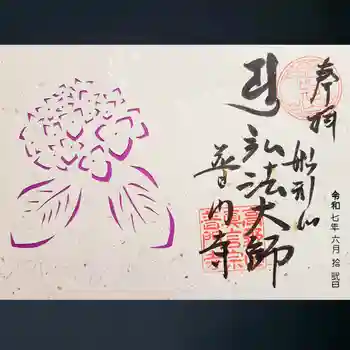 奉拝
船形山
弘法大師
普門寺
令和七年六月拾弐日